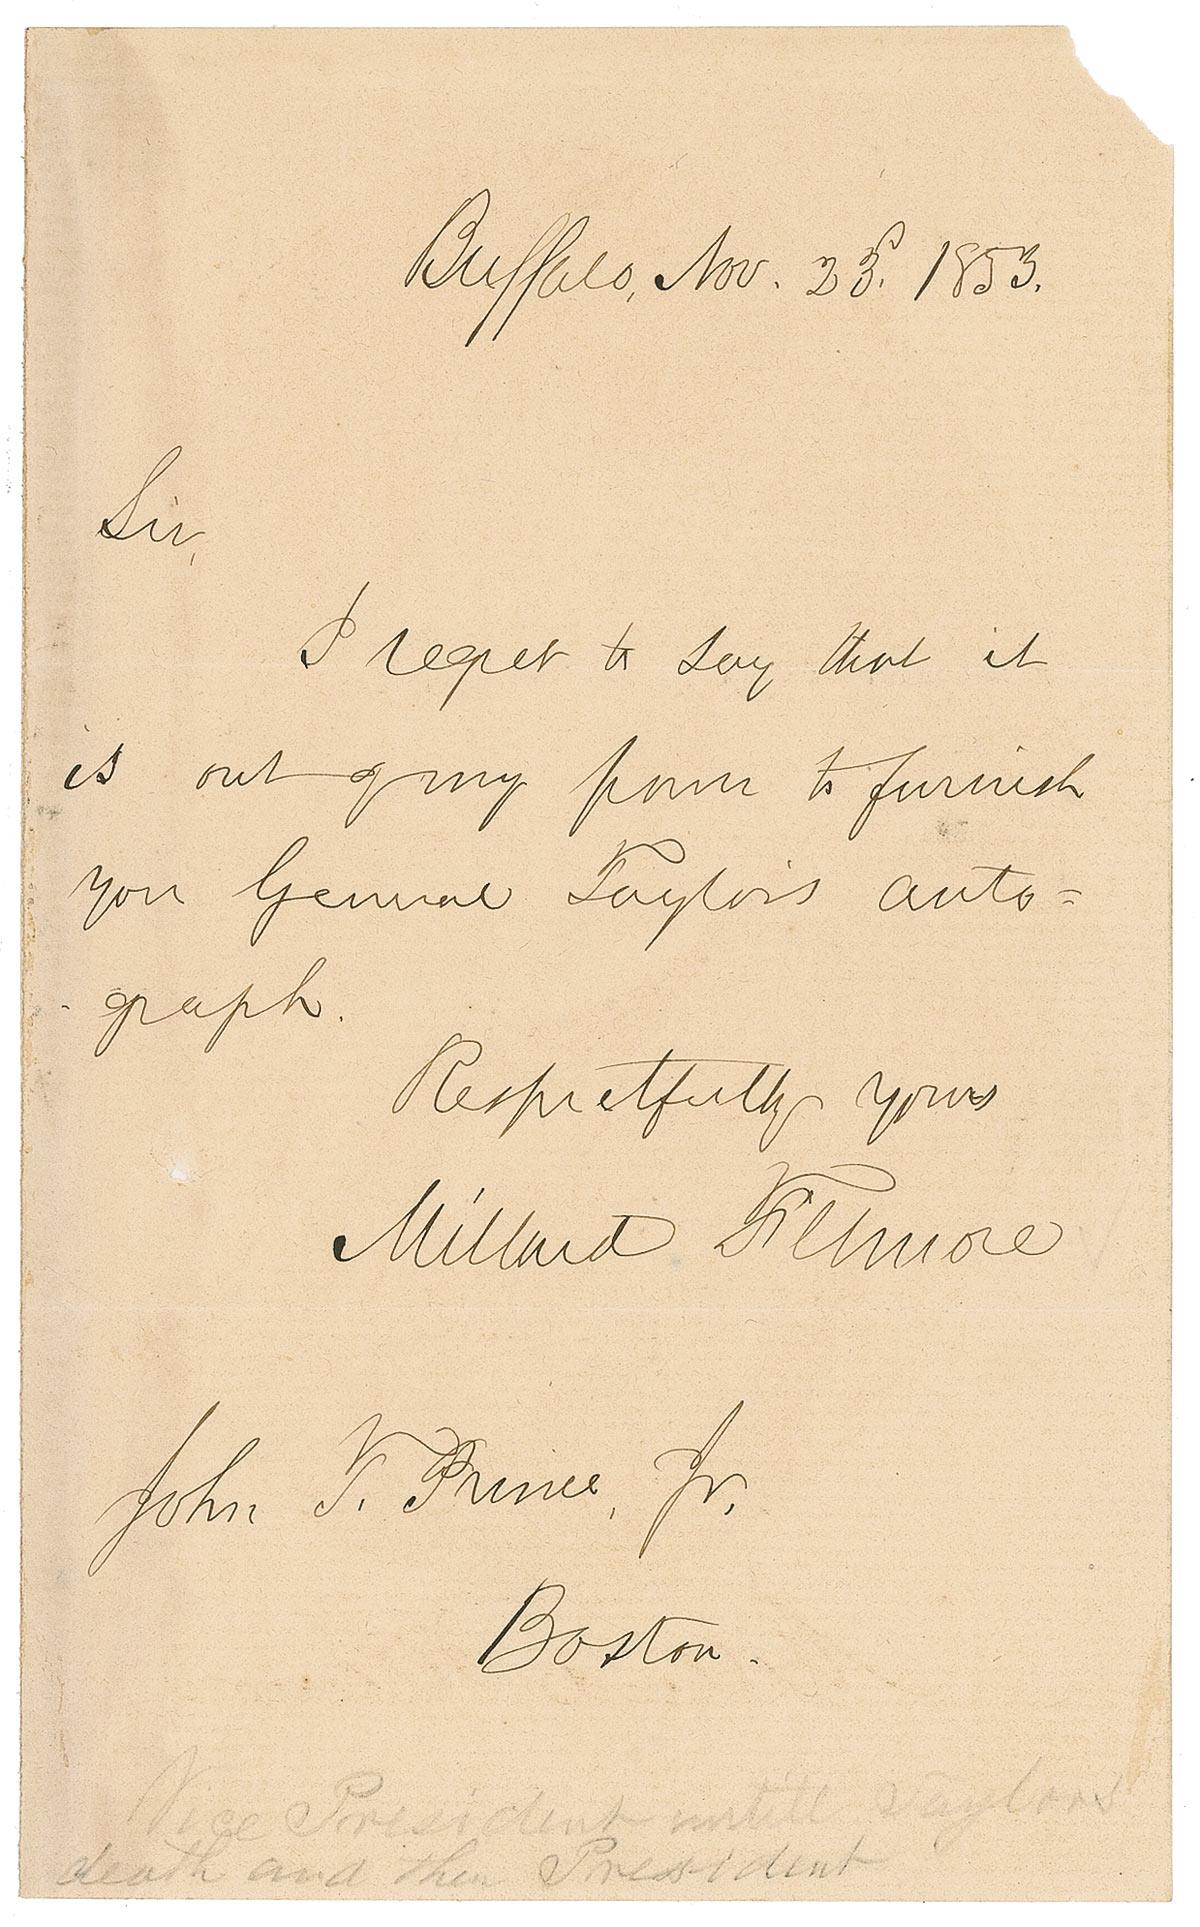 Buffalo, Nov. 23d. 1853.
Sir,
I regret to say that it
is out of my power to furnish
you General Taylor's auto=
- graph.
Respectfully yours
Millard Fillmore
John T. Prince, Jr.
Boston.
Vice President untill Taylors
death and then President